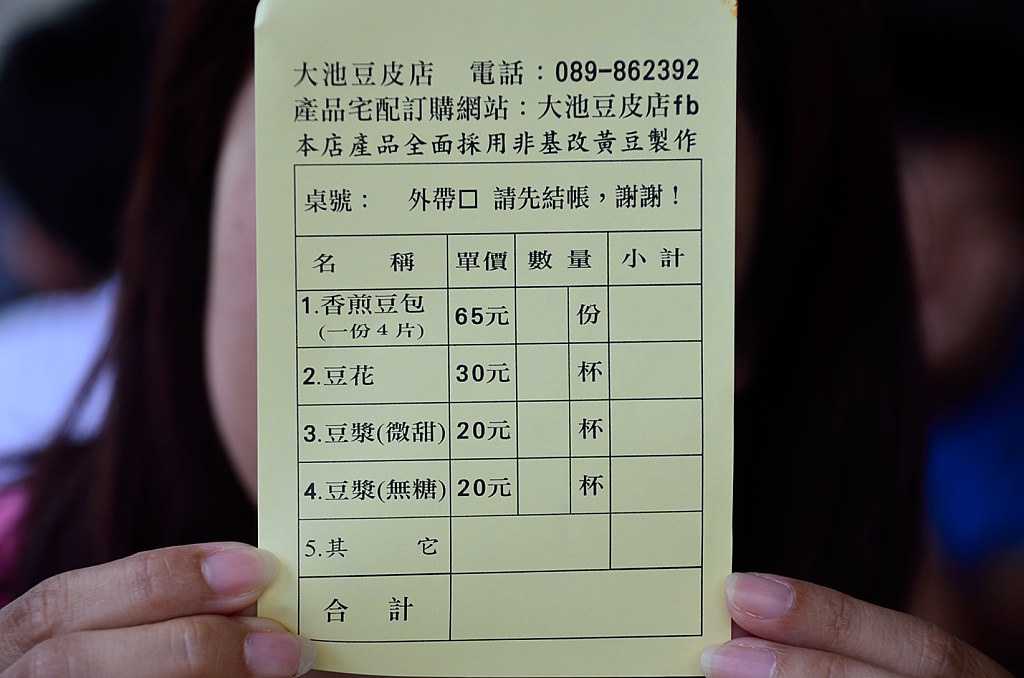 大池豆皮店 電話：089-862392
產品宅配訂購網站：大池豆皮店fb
本店產品全面採用非基改黃豆製作
桌號： 外帶□ 請先結帳，謝謝！
名 稱 單價 數 量 小 計
1.香煎豆包 65元 份
(一份4片)
2.豆花 30元 杯
3.豆漿(微甜) 20元 杯
4.豆漿(無糖) 20元 杯
5.其 它
合 計